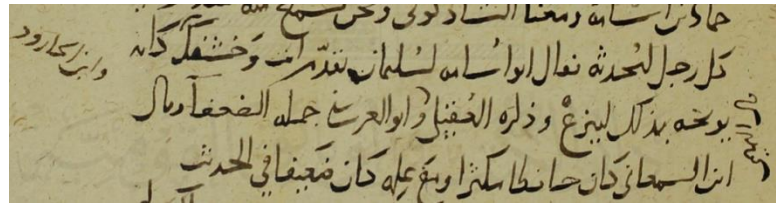 حماد بن اسامه ومعنا الشاذكونى ونحن نسمع
كل رجل ليحدثه فقال ابو اسامه لسليمان تقدم انت وخشفك كان
يوبخه بذلك لينزع وذكره العقيلى وابو العرب فى جمله الضعفا وقال
ابن السمعانى كان حافظا مكثرا ومع علمه كان ضعيفا فى الحديث
وابن الجارود